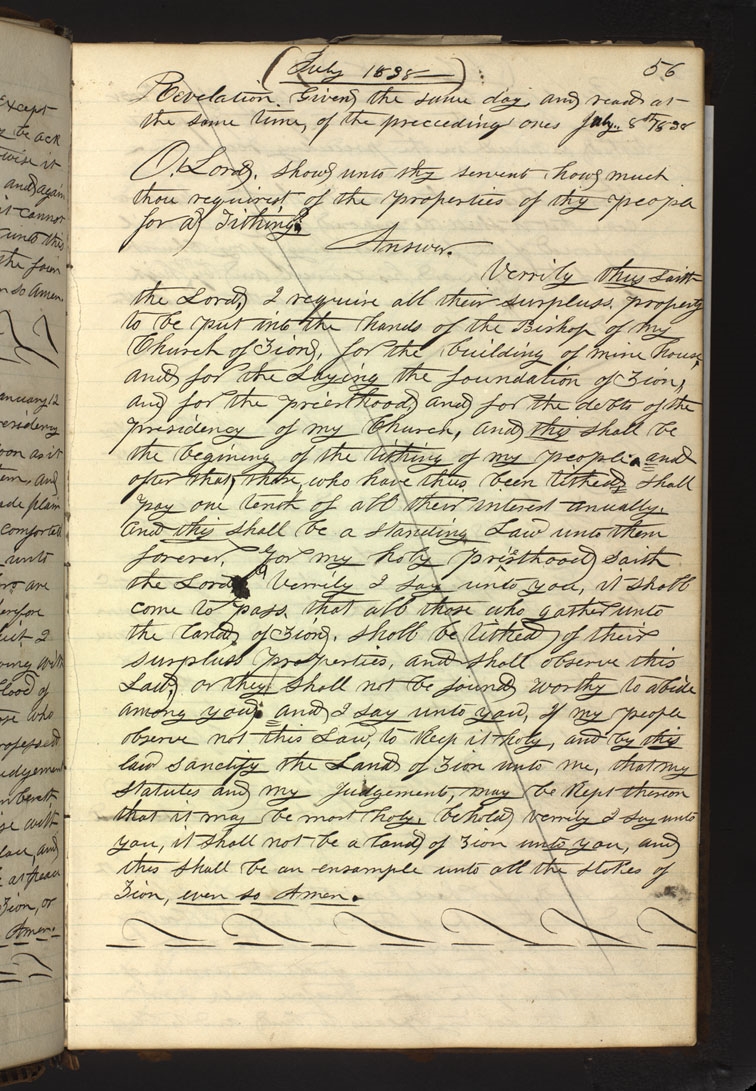 Except
y be ack
wise it
and again
it cannot
unto this
the foun
n so Amen.
anuary 12
residency
oon as it
em, and
ade plain
comfortab
unto
are
erefore
uit I
oving with
lood of
ose who
rofessed
udgement
se with
lace, and
Zion, or
Amen.
(July 1838):
56
Revelation. Given the same day, and read at
the same time, of the preceeding ones July 8th 1838
O, Lord, show unto thy servent how much
thou requirest of the properties of thy people
for a Tithing?
Answer.
Verrily thus saith
the Lord, I require all their surpluss property
to be put into the hands of the Bishop of my
Church of Zion, for the building of mine house,
and for the Laying the foundation of Zion,
and for the priesthood, and for the debts of the
presidency of my Church, and this shall be
the begining of the tithing of my people. and
after that, those, who have thus been tithed, shall
pay one tenth of all their interest anually.
And this shall be a standing Law unto them
forever, For my holy priesthood, saith
the Lord. Verrily I say unto you, it shall
come to pass, that all those who gather unto
the land of Zion, shall be tithed of their
surpluss properties, and shall observe this
Law, or they shall not be found worthy to abide
among you. and I say unto you, If my people
observe not this Law, to keep it holy, and by this
law sanctify the Land of Zion unto me, that my
Statutes and my Judgements, may be kept thereon
that it may be most holy, behold verrily I say unto
you, it shall not be a land of Zion unto you, and
this shall be an ensample unto all the stakes of
Zion, even so Amen.